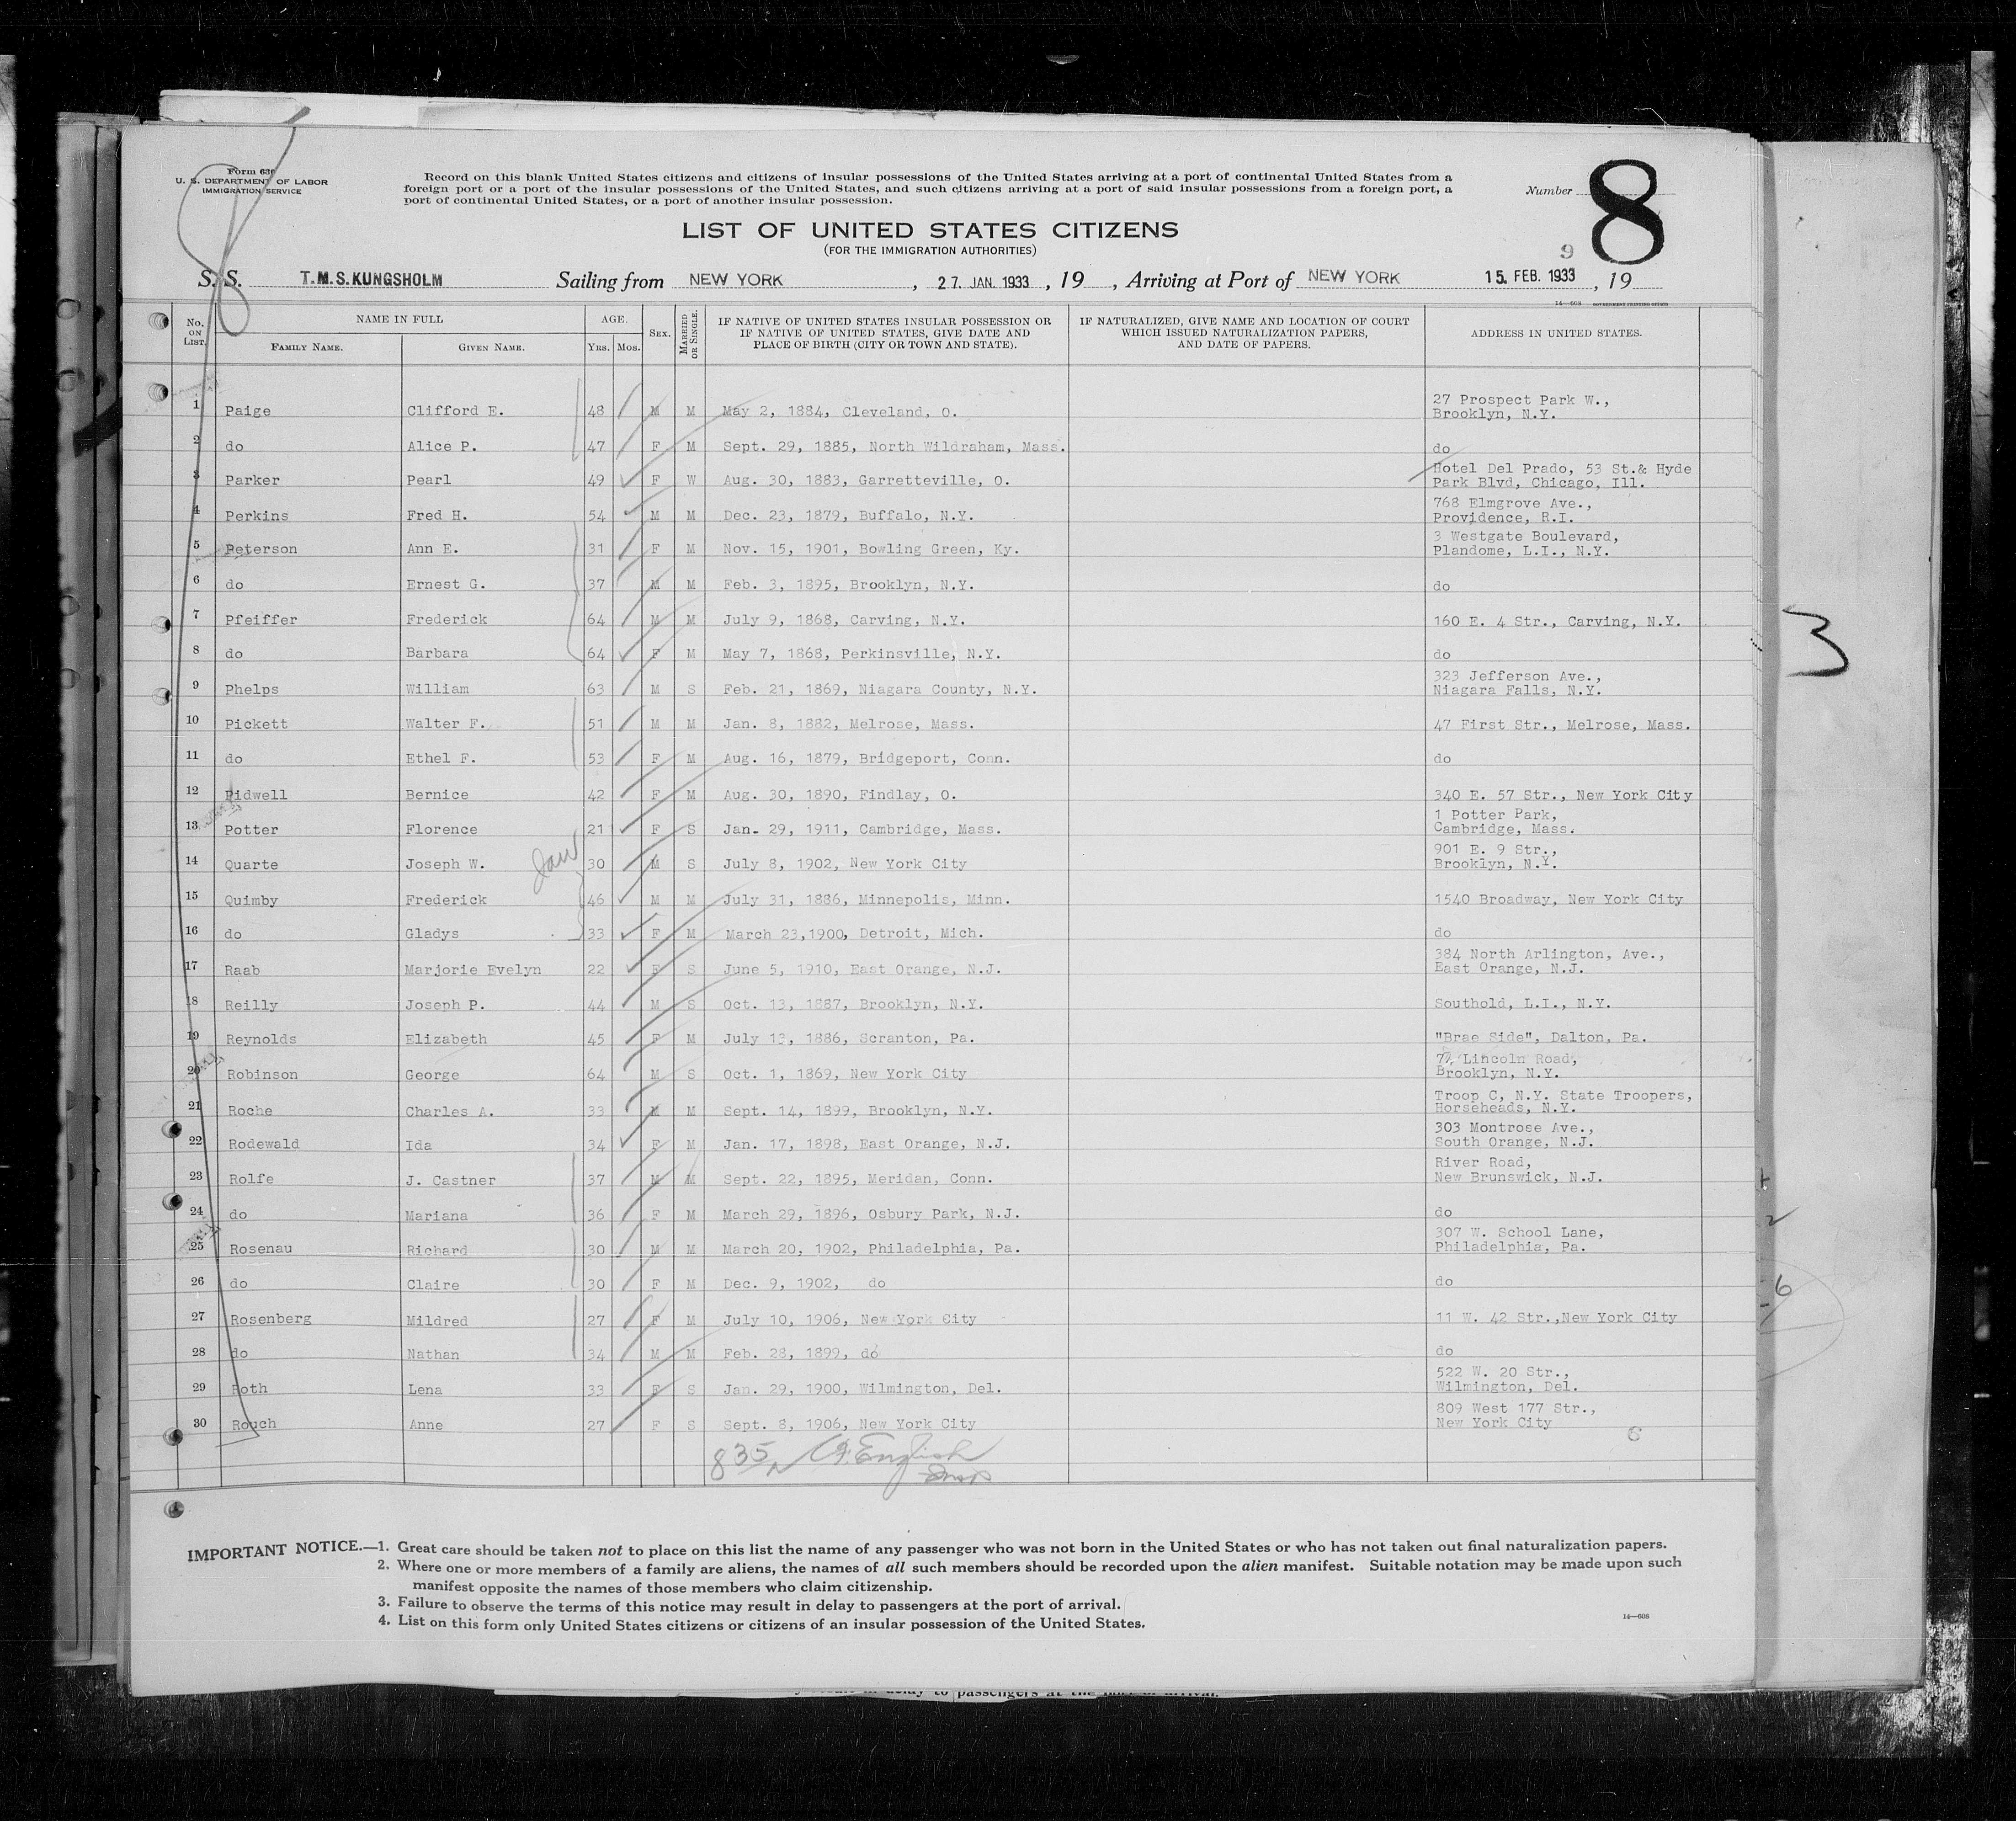 Form 630
U. S. DEPARTMENT OF LABOR
IMMIGRATION SERVICE
Record on this blank United States citizens and citizens of insular possessions of the United States arriving at a port of continental United States from a
foreign port or a port of the insular possessions of the United States, and such citizens arriving at a port of said insular possessions from a foreign port, a
port of continental United States, or a port of another insular possession.
Number 8
LIST OF UNITED STATES CITIZENS
(FOR THE IMMIGRATION AUTHORITIES)
9
S. S. T.M.S. KUNGSHOLM Sailing from NEW YORK, 27. JAN. 1933, 19, Arriving at Port of NEW YORK 15. FEB. 1933, 19
14—608 GOVERNMENT PRINTING OFFICE
No. ON LIST. NAME IN FULL AGE. SEX. MARRIED OR SINGLE. IF NATIVE OF UNITED STATES INSULAR POSSESSION OR IF NATIVE OF UNITED STATES, GIVE DATE AND PLACE OF BIRTH (CITY OR TOWN AND STATE). IF NATURALIZED, GIVE NAME AND LOCATION OF COURT WHICH ISSUED NATURALIZATION PAPERS, AND DATE OF PAPERS. ADDRESS IN UNITED STATES.
FAMILY NAME. GIVEN NAME. Yrs. Mos.
1 Paige Clifford E. 48 M M May 2, 1884, Cleveland, O. 27 Prospect Park W., Brooklyn, N.Y.
2 do Alice P. 47 F M Sept. 29, 1885, North Wildraham, Mass. do
3 Parker Pearl 49 F W Aug. 30, 1883, Garretteville, O. Hotel Del Prado, 53 St.& Hyde Park Blvd, Chicago, Ill.
4 Perkins Fred H. 54 M M Dec. 23, 1879, Buffalo, N.Y. 768 Elmgrove Ave., Providence, R.I.
5 Peterson Ann E. 31 F M Nov. 15, 1901, Bowling Green, Ky. 3 Westgate Boulevard, Plandome, L.I., N.Y.
6 do Ernest G. 37 M M Feb. 3, 1895, Brooklyn, N.Y. do
7 Pfeiffer Frederick 64 M M July 9, 1868, Carving, N.Y. 160 E. 4 Str., Carving, N.Y.
8 do Barbara 64 F M May 7, 1868, Perkinsville, N.Y. do
9 Phelps William 63 M S Feb. 21, 1869, Niagara County, N.Y. 323 Jefferson Ave., Niagara Falls, N.Y.
10 Pickett Walter F. 51 M M Jan. 8, 1882, Melrose, Mass. 47 First Str., Melrose, Mass.
11 do Ethel F. 53 F M Aug. 16, 1879, Bridgeport, Conn. do
12 Pidwell Bernice 42 F M Aug. 30, 1890, Findlay, O. 340 E. 57 Str., New York City
13 Potter Florence 21 F S Jan. 29, 1911, Cambridge, Mass. 1 Potter Park, Cambridge, Mass.
14 Quarte Joseph W. 30 M S July 8, 1902, New York City 901 E. 9 Str., Brooklyn, N.Y.
15 Quimby Frederick 46 M M July 31, 1886, Minnepolis, Minn. 1540 Broadway, New York City
16 do Gladys 33 F M March 23,1900, Detroit, Mich. do
17 Raab Marjorie Evelyn 22 F S June 5, 1910, East Orange, N.J. 384 North Arlington, Ave., East Orange, N.J.
18 Reilly Joseph P. 44 M S Oct. 13, 1887, Brooklyn, N.Y. Southold, L.I., N.Y.
19 Reynolds Elizabeth 45 F M July 13, 1886, Scranton, Pa. "Brae Side", Dalton, Pa.
20 Robinson George 64 M S Oct. 1, 1869, New York City Lincoln Road, Brooklyn, N.Y.
21 Roche Charles A. 33 M M Sept. 14, 1899, Brooklyn, N.Y. Troop C, N.Y. State Troopers, Horseheads, N.Y.
22 Rodewald Ida 34 F M Jan. 17, 1898, East Orange, N.J. 303 Montrose Ave., South Orange, N.J.
23 Rolfe J. Castner 37 M M Sept. 22, 1895, Meridan, Conn. River Road, New Brunswick, N.J.
24 do Mariana 36 F M March 29, 1896, Osbury Park, N.J. do
25 Rosenau Richard 30 M M March 20, 1902, Philadelphia, Pa. 307 W. School Lane, Philadelphia, Pa.
26 do Claire 30 F M Dec. 9, 1902, do do
27 Rosenberg Mildred 27 F M July 10, 1906, New York City 11 W. 42 Str.,New York City
28 do Nathan 34 M M Feb. 28, 1899, do do
29 Roth Lena 33 F S Jan. 29, 1900, Wilmington, Del. 522 W. 20 Str., Wilmington, Del.
30 Rouch Anne 27 F S Sept. 8, 1906, New York City 809 West 177 Str., New York City
6
835 English Insp
3
2
6
IMPORTANT NOTICE.—1. Great care should be taken not to place on this list the name of any passenger who was not born in the United States or who has not taken out final naturalization papers.
2. Where one or more members of a family are aliens, the names of all such members should be recorded upon the alien manifest. Suitable notation may be made upon such
manifest opposite the names of those members who claim citizenship.
3. Failure to observe the terms of this notice may result in delay to passengers at the port of arrival.
4. List on this form only United States citizens or citizens of an insular possession of the United States.
14—608